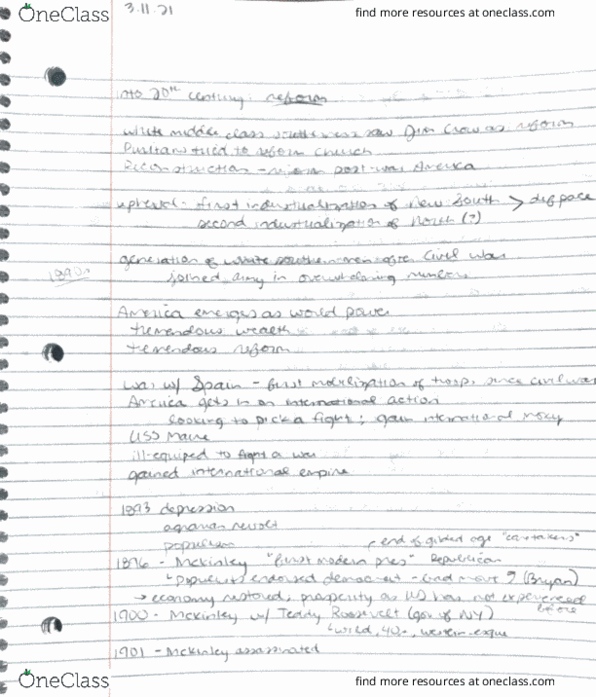 OneClass
find more resources at oneclass.com
3.11.21
into 20th century: reform
white middle class southerners saw Jim Crow as reform
Puritans tried to reform church
Reconstruction - reform post-war America
upheaval - first industrialization of New South > diff pace
second industrialization of North (?)
generation of white southern men after Civil War
1890s
joined army in overwhelming numbers
America emerges as world power
tremendous wealth
tremendous reform
War w/ Spain - first mobilization of troops since civil war
America gets in on international action
looking to pick a fight; gain international
USS Maine
ill-equiped to fight a war
gained international empire
1893 depression
agrarian revolt
populism
end of gilded age "caretakers"
1896 - McKinley "first modern pres" Republican
Populists endorsed democrat - bad move? (Bryan)
→ economy restored, prosperity as US has not experienced before
1900 - McKinley w/ Teddy Roosevelt (gov of NY)
wild, 40, western
1901 - McKinley assassinated
OneClass
find more resources at oneclass.com